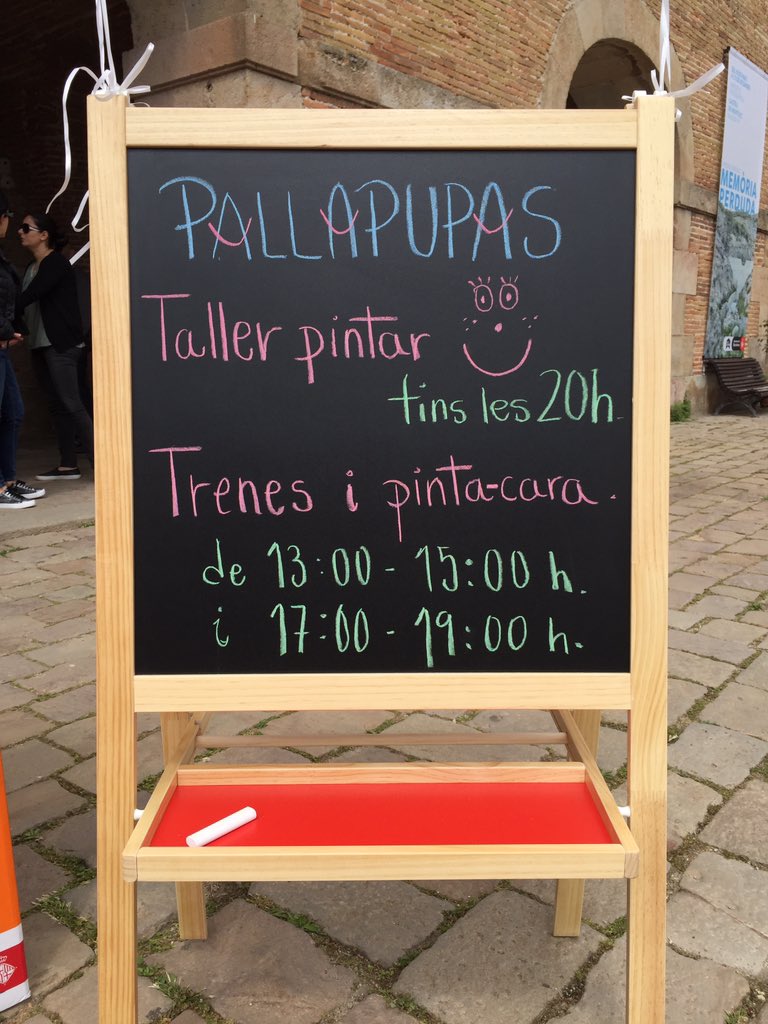 PALLAPUPAS
Taller pintar
fins les 20h.
Trenes i pinta-cara.
de 13:00 - 15:00 h.
i 17:00 - 19:00 h.
MEMÒRIA
PERDUDA